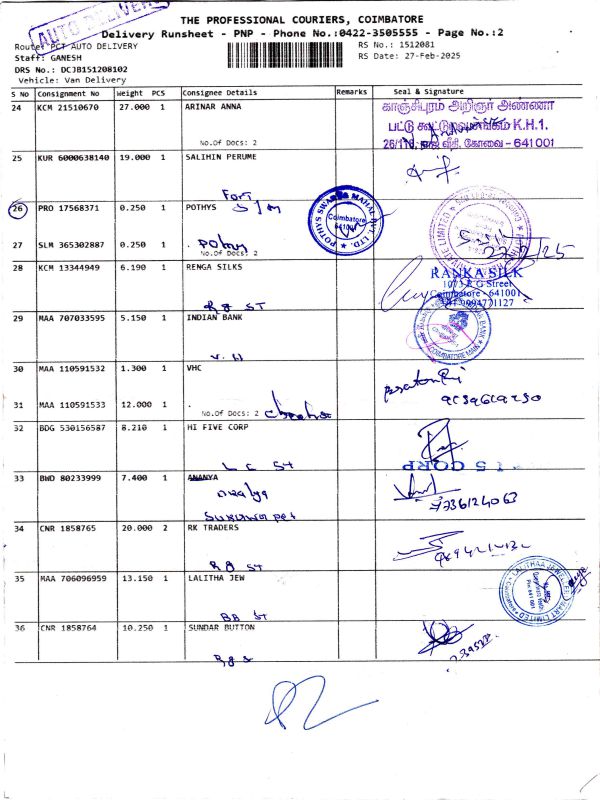 AUTO DELIVERY
THE PROFESSIONAL COURIERS, COIMBATORE
Delivery Runsheet - PNP - Phone No.:0422-3505555 - Page No.:2
Route: PCT AUTO DELIVERY
RS No.: 1512081
Staff: GANESH
RS Date: 27-Feb-2025
DRS No.: DCJB151208102
Vehicle: Van Delivery
S No Consignment No Weight PCS Consignee Details Remarks Seal & Signature
24 KCM 21510670 27.000 1 ARINAR ANNA
No.Of Docs: 2
காஞ்சிபுரம் அறிஞர் அண்ணா
பட்டு K.H.1.
கோவை - 641001
25 KUR 6000638140 19.000 1 SALIHIN PERUME
Fort
26 PRO 17568371 0.250 1 POTHYS
POTHYS SWARNA MAHAL PVT. LTD.
Coimbatore
641001
27 SLM 365302887 0.250 1 .
No.Of Docs: 2
28 KCM 13344949 6.190 1 RENGA SILKS
RG ST
RANKA SILK
1073 R G Street
Coimbatore - 641001
9994721127
29 MAA 707033595 5.150 1 INDIAN BANK
V.H
COIMBATORE MAIN
30 MAA 110591532 1.300 1 VHC
31 MAA 110591533 12.000 1 .
No.Of Docs: 2
32 BDG 530156587 8.210 1 HI FIVE CORP
L C ST
5 CORP
33 BWD 80233999 7.400 1 ANANYA
34 CNR 1858765 20.000 2 RK TRADERS
RG ST
35 MAA 706096959 13.150 1 LALITHA JEW
BB ST
36 CNR 1858764 10.250 1 SUNDAR BUTTON